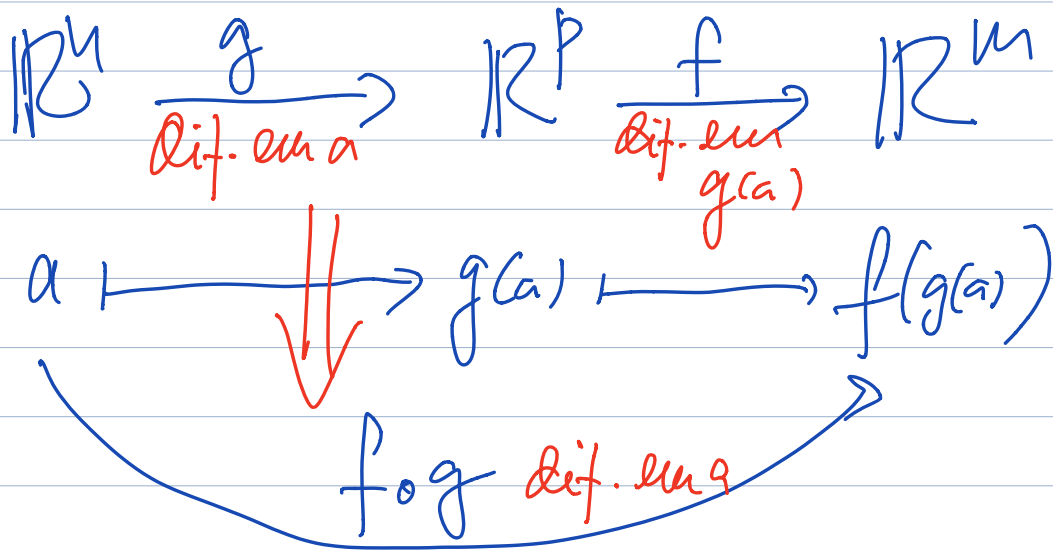 g f
ℝⁿ → ℝᵖ → ℝᵐ
dif. em a dif. em
g(a)
a ↦ g(a) ↦ f(g(a))
f∘g dif. em a